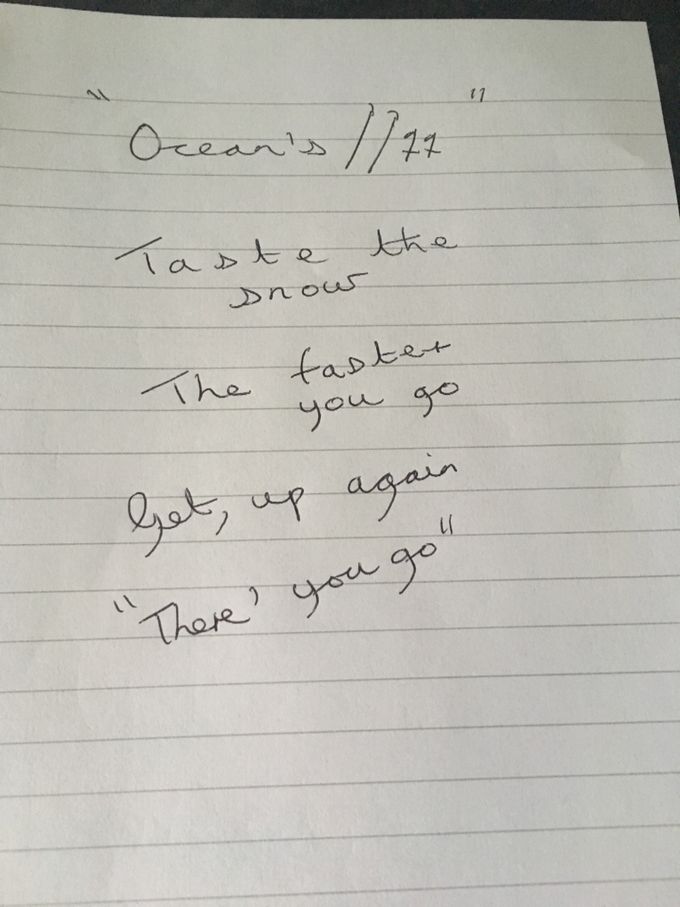 "Ocean's 1177"
Taste the
snow
The faster
you go
Get, up again
"There' you go"